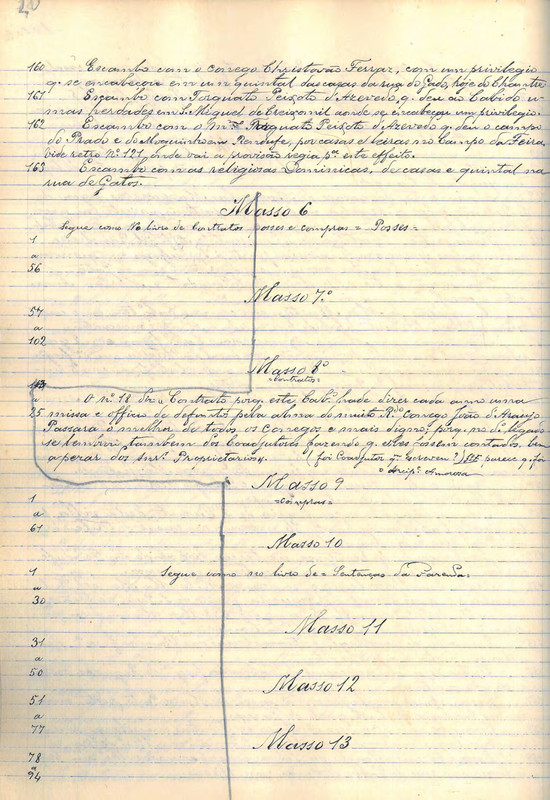 20
160 Escambo com o conego Christovão Ferraz, com um privilegio
q. se encabeçou em um quintal das casas da rua do Gado, hoje do Chantre
161 Escambo com Torquato Peixoto d'Azevedo, q. deu ao Cabido u-
mas herdades em S. Miguel de Creixomil aonde se encabeçou um privilegio.
162 Escambo com o Torquato Peixoto d'Azevedo q. deu o campo
do Prado e do Moquinho em Rendufe, por casas e leiras no Campo da Feira,
vide retro nº 121, onde vai a provisão regia pª este effeito.
163 Escambo com as religiosas Dominicas, de casas e quintal na
rua de Gatos.
Masso 6
Segue como no livro de Contratos posses e compras = Posses =
1
a
56
Masso 7.º
57
a
102
Masso 8º
= Contratos =
103
a
O nº 18 diz: Contrato porq. este Cab.º hade dizer cada anno uma
25 missa e officio de defuntos pela alma do muito R.do Conego João d'Araujo
Passara o melhor de todos os conegos e mais digno; porq. no legado
se lembrou tambem dos Coadjutores fazendo q. elles fossem contados,
a perar dos Snrs. Proprietarios. (foi Coadjutor q.m escreveu?) parece q. foi
o Arcip.e Amorosa
Masso 9
= Compras =
1
a
61
Masso 10
1
Segue como no livro de = Sentenças da Fazenda =
a
30
Masso 11
31
a
50
Masso 12
51
a
77
Masso 13
78
a
94